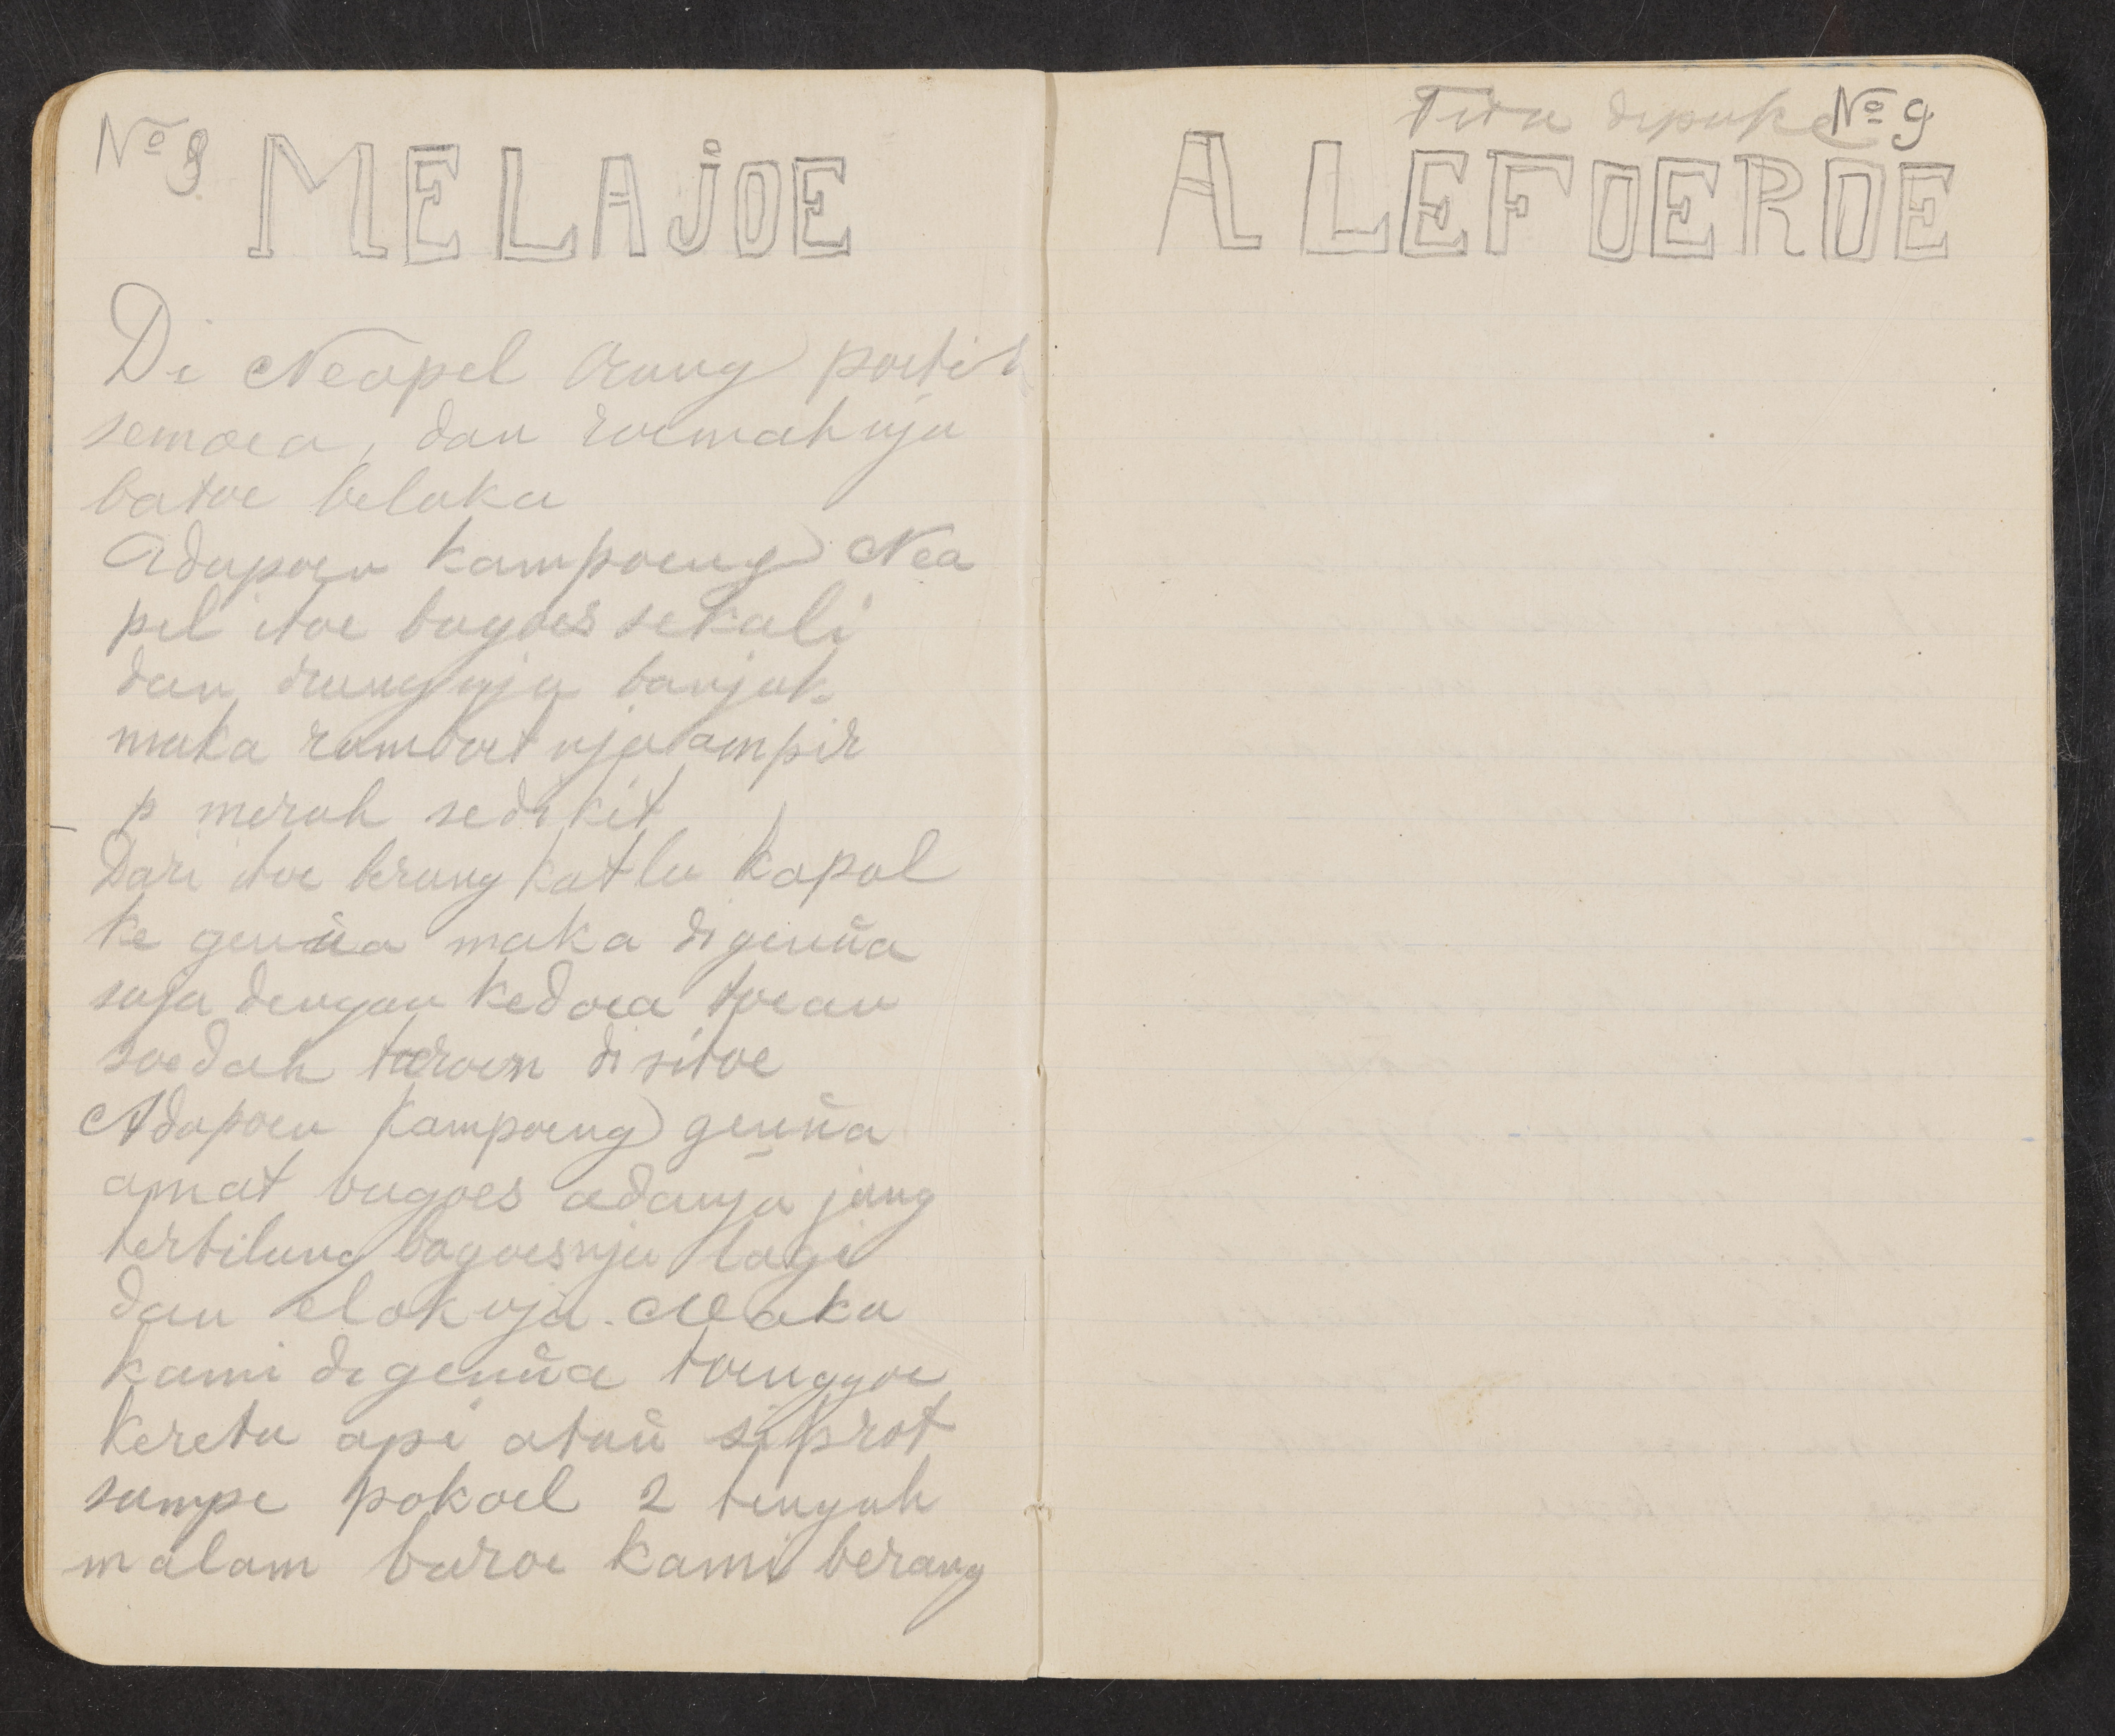 No 8
MELAJOE
Di Neapel Orang poetih
semoea, dan roemahnja
batoe belaka
Adapoen kampoeng Nea
pel itoe bagoes sekali
dan orangnja banjak
maka ramboetnja ampir
p merah sedikit
Dari itoe berangkatla kapal
ke genŭa maka di genŭa
saja dengan kedoea toean
soedah toeroen di sitoe
Adapoen kampoeng genŭa
amat bagoes adanja jang
terbilang bagoesnja lagi
dan eloknja. Maka
kami di genŭa toenggoe
kereta api ataŭ siprot
sampe pokoel 2 tengah
malam baroe kami berang
Tida dipake No 9
ALEFOEROE